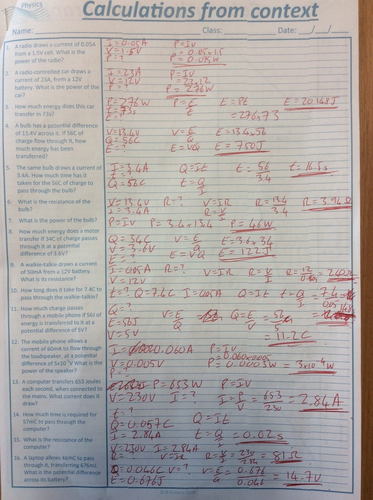 Physics
Calculations from context
Name: Class: Date: __/__/__
1. A radio draws a current of 0.05A from a 1.5V cell. What is the power of the radio?
I=0.05A P=IV
V=1.5V P=0.05×1.5
P=? P=0.075W
2. A radio-controlled car draws a current of 23A, from a 12V battery. What is the power of the car?
I=23A P=IV
V=12V P=23×12
P=? P=276W
3. How much energy does this car transfer in 73s?
P=276W P=E/t E=Pt E=20148J
t=73s =276×73
E=?
4. A bulb has a potential difference of 13.4V across it. If 56C of charge flow through it, how much energy has been transferred?
V=13.4V V=E/Q E=13.4×56
Q=56C
E=? E=VQ E=750J
5. The same bulb draws a current of 3.4A. How much time has it taken for the 56C of charge to pass through the bulb?
I=3.4A Q=It t=56/3.4 t=16.5s
t=?
Q=56C t=Q/I
6. What is the resistance of the bulb?
V=13.4V R=? V=IR R=13.4/3.4 R=3.94Ω
I=3.4A R=V/I
7. What is the power of the bulb?
P=IV P=3.4×13.4 P=46W
8. How much energy does a motor transfer if 34C of charge passes through it at a potential difference of 3.6V?
Q=34C V=E/Q E=3.6×34
V=3.6V
E=? E=VQ E=122J
9. A walkie-talkie draws a current of 50mA from a 12V battery. What is its resistance?
I=0.05A R=? V=IR R=V/I R=12/0.05=240Ω
V=12V
10. How long does it take for 7.4C to pass through the walkie-talkie?
t=? Q=7.4C I=0.05A Q=It t=Q/I=7.4/0.05
11. How much charge passes through a mobile phone if 56J of energy is transferred to it at a potential difference of 5V?
Q=?
E=56J V=E/Q Q=E/V=56/5
V=5V =11.2C
12. The mobile phone allows a current of 60mA to flow through the loudspeaker, at a potential difference of 5x10⁻³V. What is the power of the speaker?
I=0.060A P=IV
V=0.005V P=0.060×0.005
P= P=0.0003W=3×10⁻⁴W
13. A computer transfers 653 joules each second, when connected to the mains. What current does it draw?
P=653W P=IV
V=230V I=? I=P/V=653/230=2.84A
14. How much time is required for 57mC to pass through the computer?
t=? Q=It
Q=0.057C
I=2.84A t=Q/I=0.02s
15. What is the resistance of the computer?
V=230V I=2.84A
R=? V=IR R=V/I=230/2.84=81Ω
16. A laptop allows 46mC to pass through it, transferring 676mJ. What is the potential difference across its battery?
Q=0.046C V=? V=E/Q=0.676/0.046=14.7V
E=0.676J